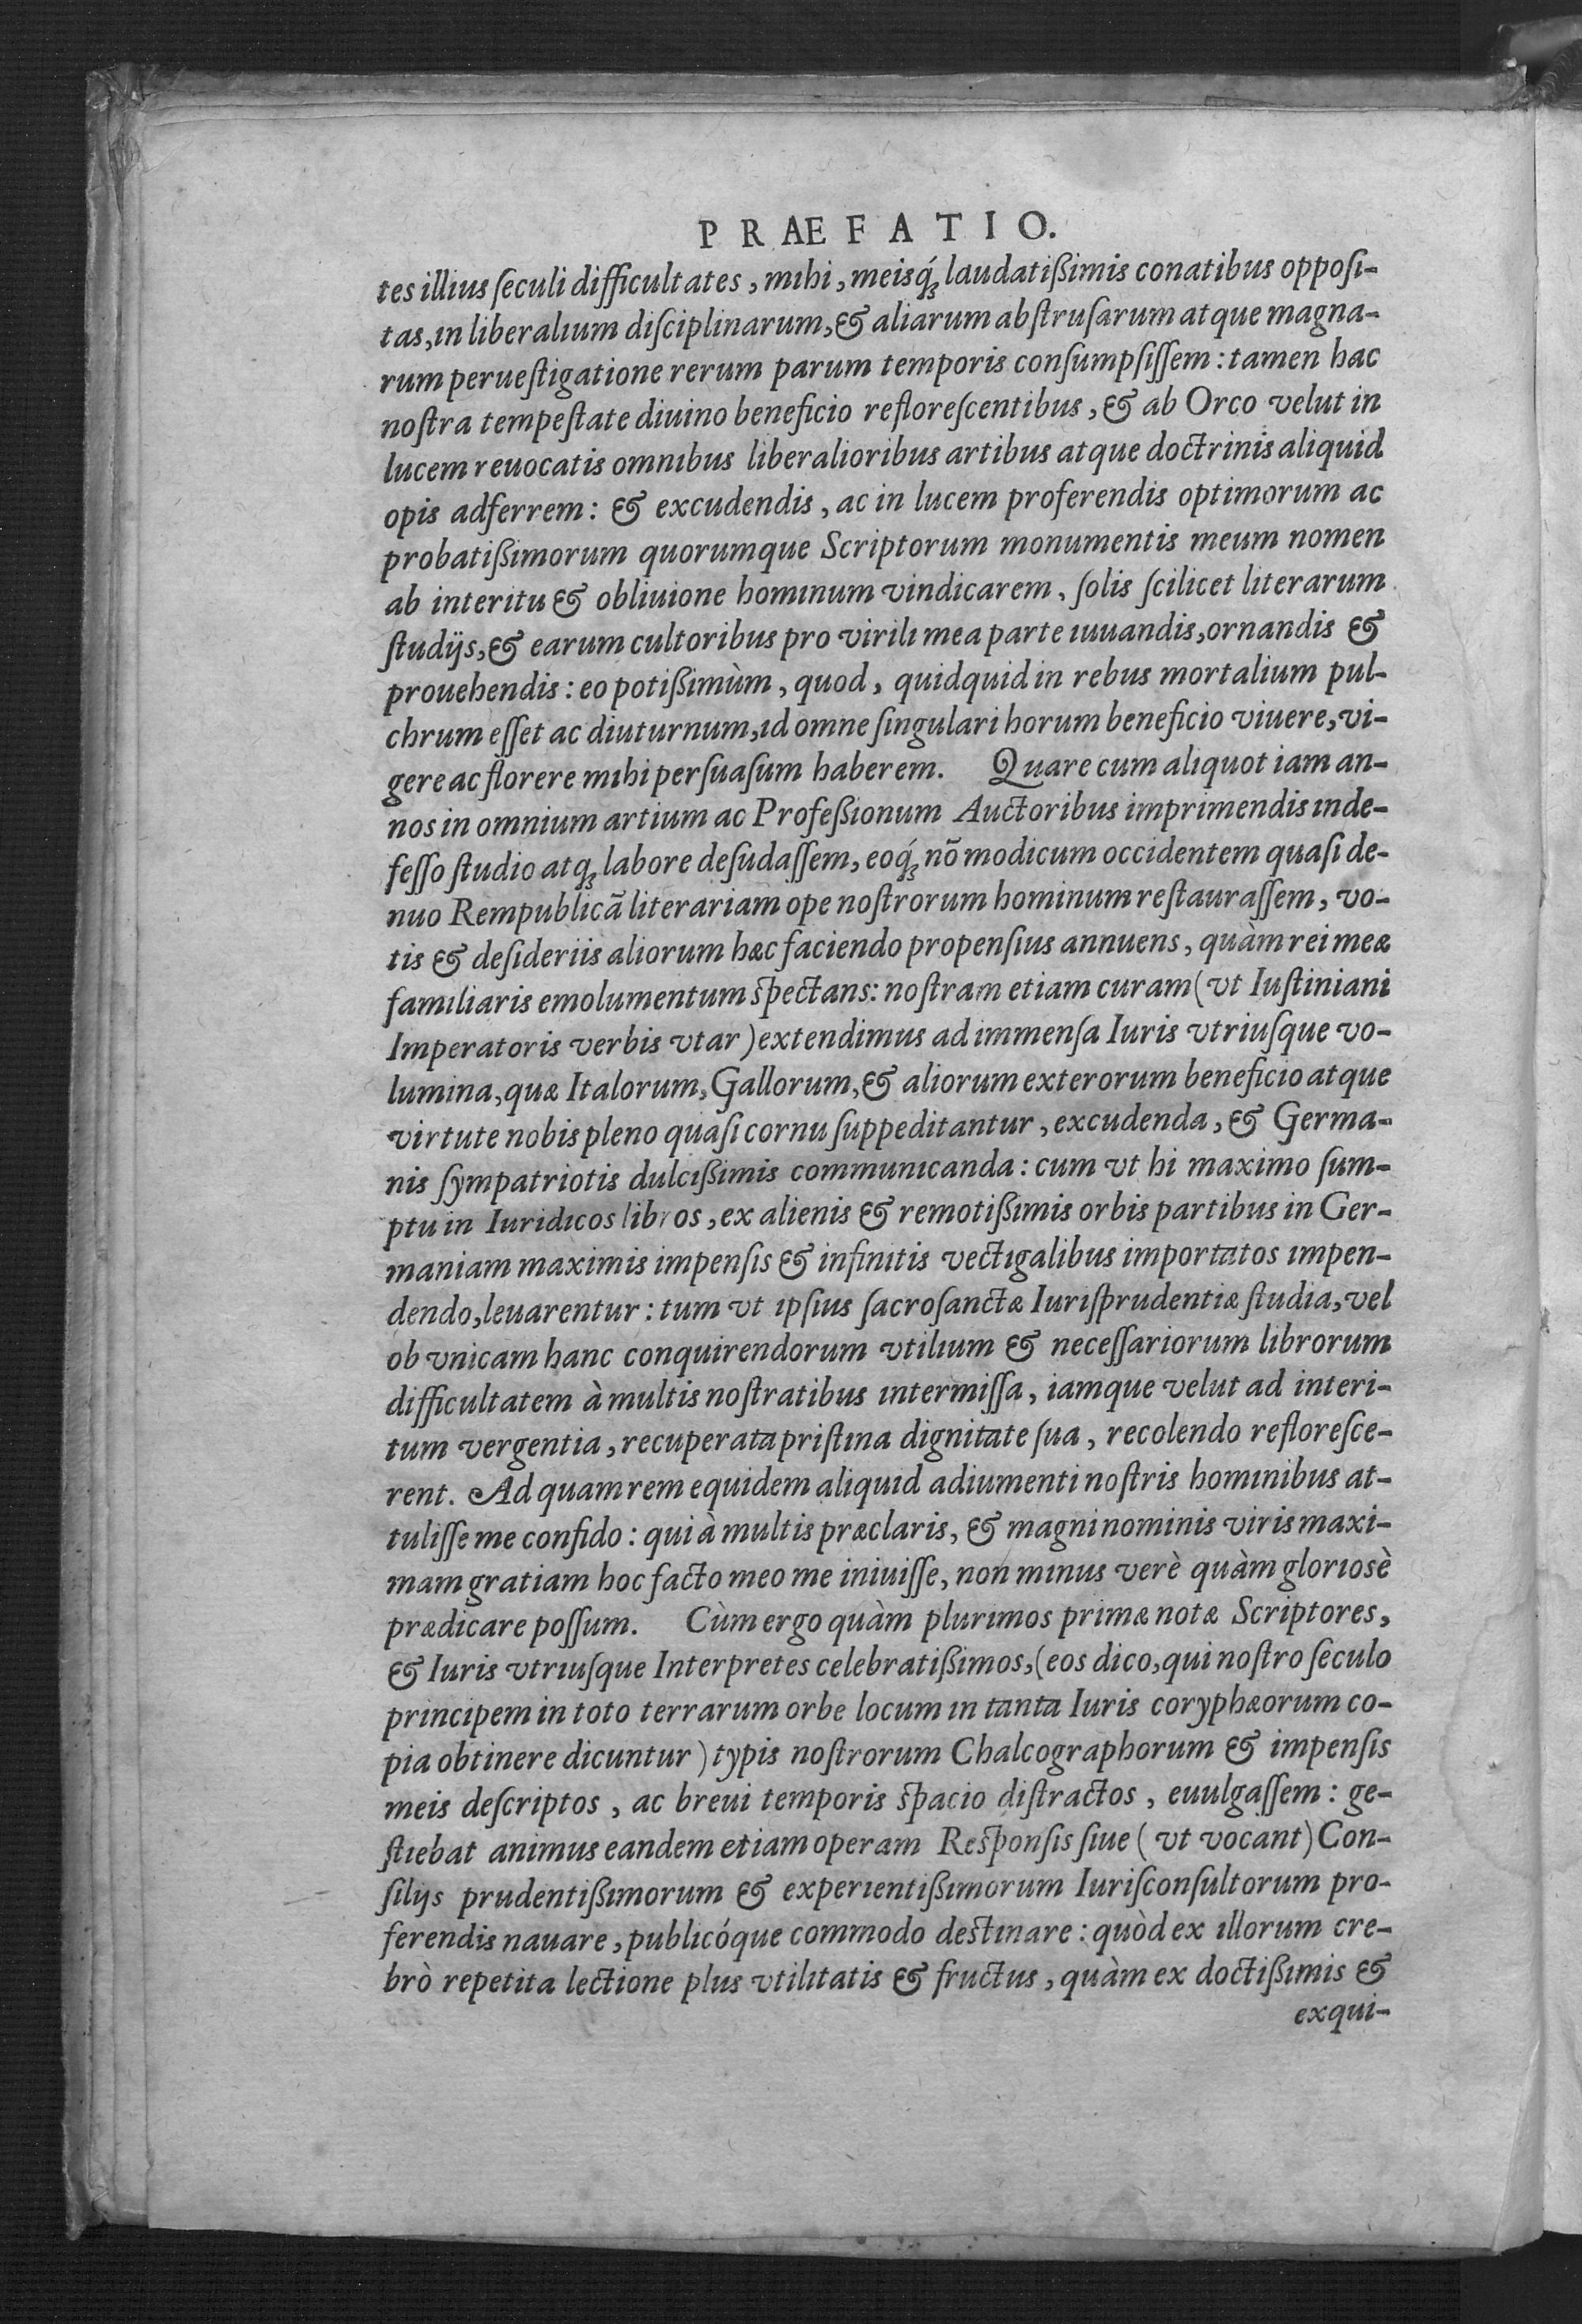 PRAEFATIO.
tes illius ſeculi difficultates, mihi, meisq́ꝫ laudatißimis conatibus oppoſi-
tas, in liberalium diſciplinarum, & aliarum abſtruſarum atque magna-
rum perueſtigatione rerum parum temporis conſumpſiſſem: tamen hac
noſtra tempeſtate diuino beneficio refloreſcentibus, & ab Orco velut in
lucem reuocatis omnibus liberalioribus artibus atque doctrinis aliquid
opis adferrem: & excudendis, ac in lucem proferendis optimorum ac
probatißimorum quorumque Scriptorum monumentis meum nomen
ab interitu & obliuione hominum vindicarem, ſolis ſcilicet literarum
ſtudijs, & earum cultoribus pro virili mea parte iuuandis, ornandis &
prouehendis: eo potißimùm, quod, quidquid in rebus mortalium pul-
chrum eſſet ac diuturnum, id omne ſingulari horum beneficio viuere, vi-
gere ac florere mihi perſuaſum haberem. Quare cum aliquot iam an-
nos in omnium artium ac Profeßionum Auctoribus imprimendis inde-
feſſo ſtudio atqꝫ labore deſudaſſem, eoq́ꝫ nõ modicum occidentem quaſi de-
nuo Rempublicã literariam ope noſtrorum hominum reſtauraſſem, vo-
tis & deſideriis aliorum hæc faciendo propenſius annuens, quàm rei meæ
familiaris emolumentum ſpectans: noſtram etiam curam (vt Iuſtiniani
Imperatoris verbis vtar) extendimus ad immenſa Iuris vtriuſque vo-
lumina, quæ Italorum, Gallorum, & aliorum exterorum beneficio atque
virtute nobis pleno quaſi cornu ſuppeditantur, excudenda, & Germa-
nis ſympatriotis dulcißimis communicanda: cum vt hi maximo ſum-
ptu in Iuridicos libros, ex alienis & remotißimis orbis partibus in Ger-
maniam maximis impenſis & infinitis vectigalibus importatos impen-
dendo, leuarentur: tum vt ipſius ſacroſanctæ Iuriſprudentiæ ſtudia, vel
ob vnicam hanc conquirendorum vtilium & neceſſariorum librorum
difficultatem à multis noſtratibus intermiſſa, iamque velut ad interi-
tum vergentia, recuperata priſtina dignitate ſua, recolendo refloreſce-
rent. Ad quam rem equidem aliquid adiumenti noſtris hominibus at-
tuliſſe me confido: qui à multis præclaris, & magni nominis viris maxi-
mam gratiam hoc facto meo me iniuiſſe, non minus verè quàm gloriosè
prædicare poſſum. Cùm ergo quàm plurimos primæ notæ Scriptores,
& Iuris vtriuſque Interpretes celebratißimos, (eos dico, qui noſtro ſeculo
principem in toto terrarum orbe locum in tanta Iuris coryphæorum co-
pia obtinere dicuntur) typis noſtrorum Chalcographorum & impenſis
meis deſcriptos, ac breui temporis ſpacio diſtractos, euulgaſſem: ge-
ſtiebat animus eandem etiam operam Reſponſis ſiue (vt vocant) Con-
ſilijs prudentißimorum & experientißimorum Iuriſconſultorum pro-
ferendis nauare, publicóque commodo deſtinare: quòd ex illorum cre-
brò repetita lectione plus vtilitatis & fructus, quàm ex doctißimis &
exqui-